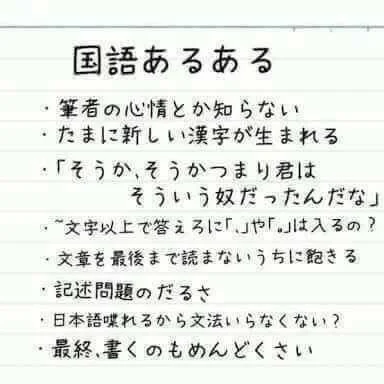 国語あるある
・筆者の心情とか知らない
・たまに新しい漢字が生まれる
・「そうか、そうかつまり君は
そういう奴だったんだな」
・~文字以上で答えろに「、」や「。」は入るの？
・文章を最後まで読まないうちに飽きる
・記述問題のだるさ
・日本語喋れるから文法いらなくない？
・最終、書くのもめんどくさい